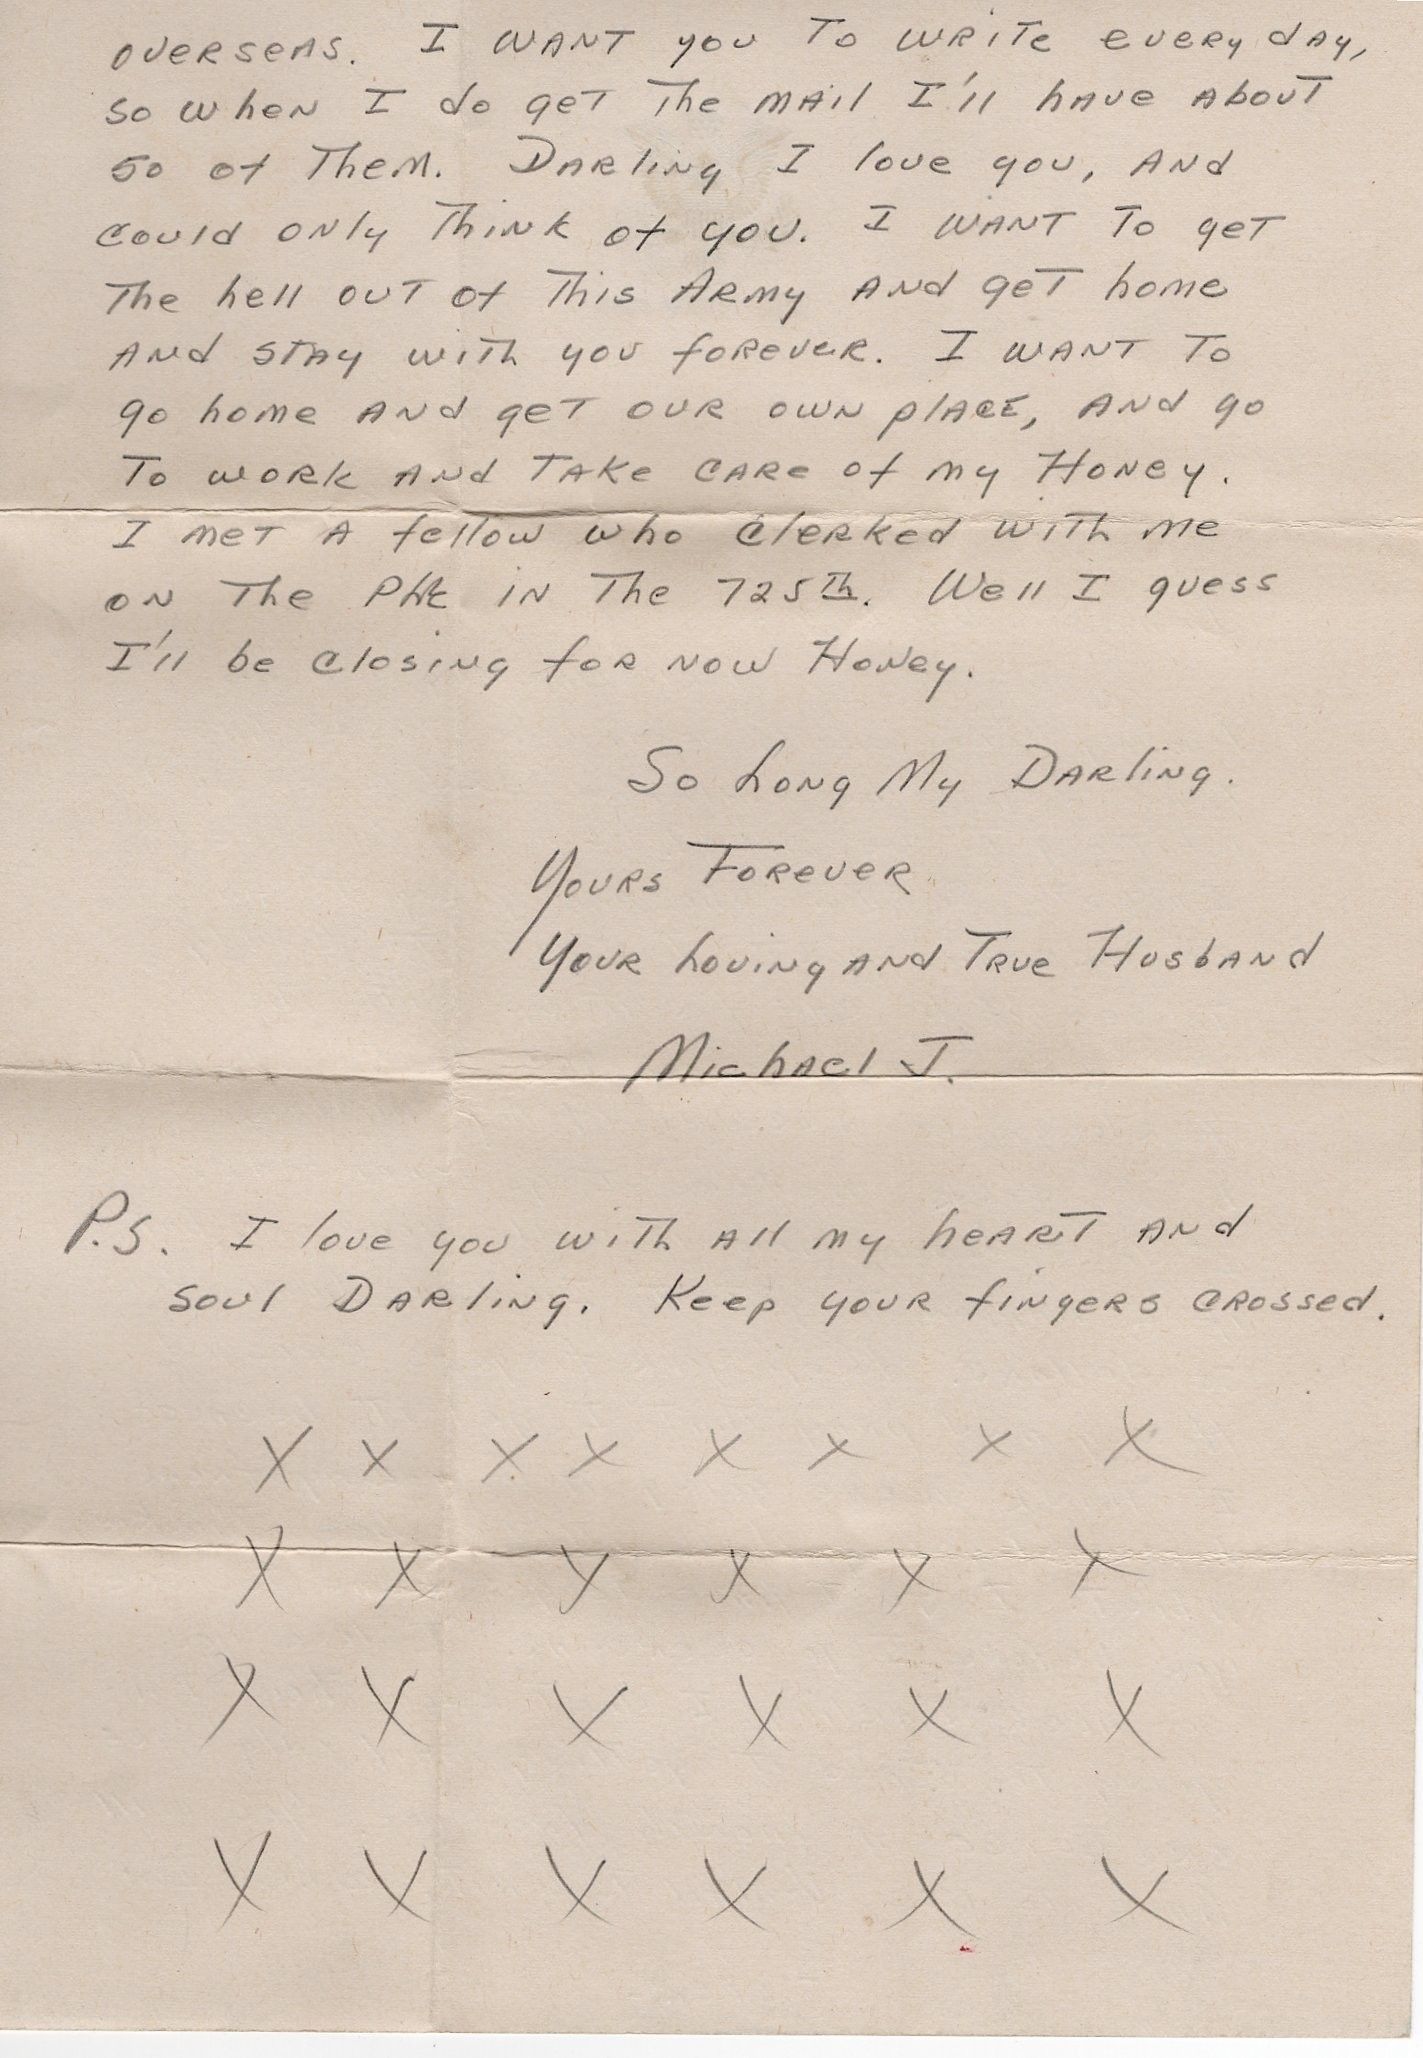 overseas. I want you to write every day,
so when I do get the mail I'll have about
50 of them. Darling I love you, and
could only think of you. I want to get
the hell out of this Army and get home
and stay with you forever. I want to
go home and get our own place, and go
to work and take care of my Honey.
I met a fellow who clerked with me
on the in the 725th. Well I guess
I'll be closing for now Honey.
So Long My Darling.
Yours Forever
Your Loving and True Husband
Michael J.
P.S. I love you with all my heart and
soul Darling. Keep your fingers crossed.
X X X X X X X X
X X X X X X
X X X X X X
X X X X X X